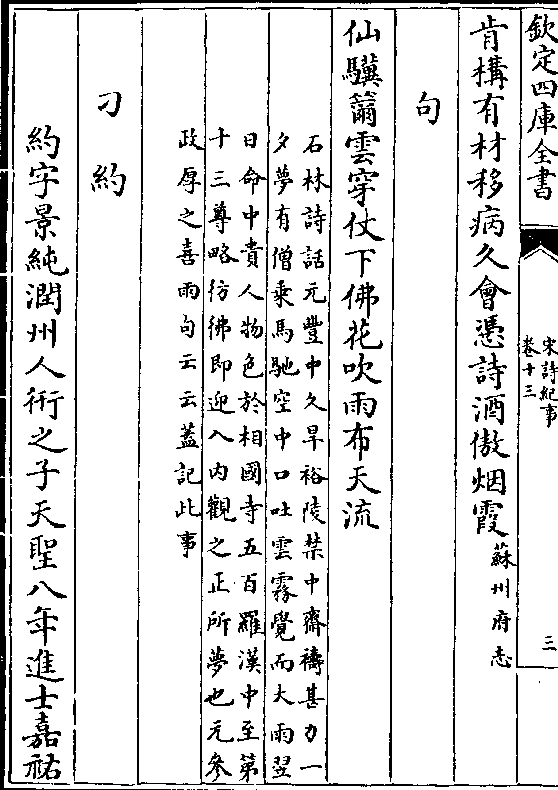 欽定四庫全書
宋詩紀事
卷十三
三
肯構有材移病久會憑詩酒傲烟霞蘇州府志
句
仙驥籋雲穿仗下佛花吹雨布天流
石林詩話元豐中久旱裕陵禁中齋禱甚力一
夕夢有僧乘馬馳空中口吐雲霧覺而大雨翌
日命中貴人物色於相國寺五百羅漢中至第
十三尊略彷彿即迎入內觀之正所夢也元參
政厚之喜雨句云云蓋記此事
刁約
約字景純潤州人衎之子天聖八年進士嘉祐